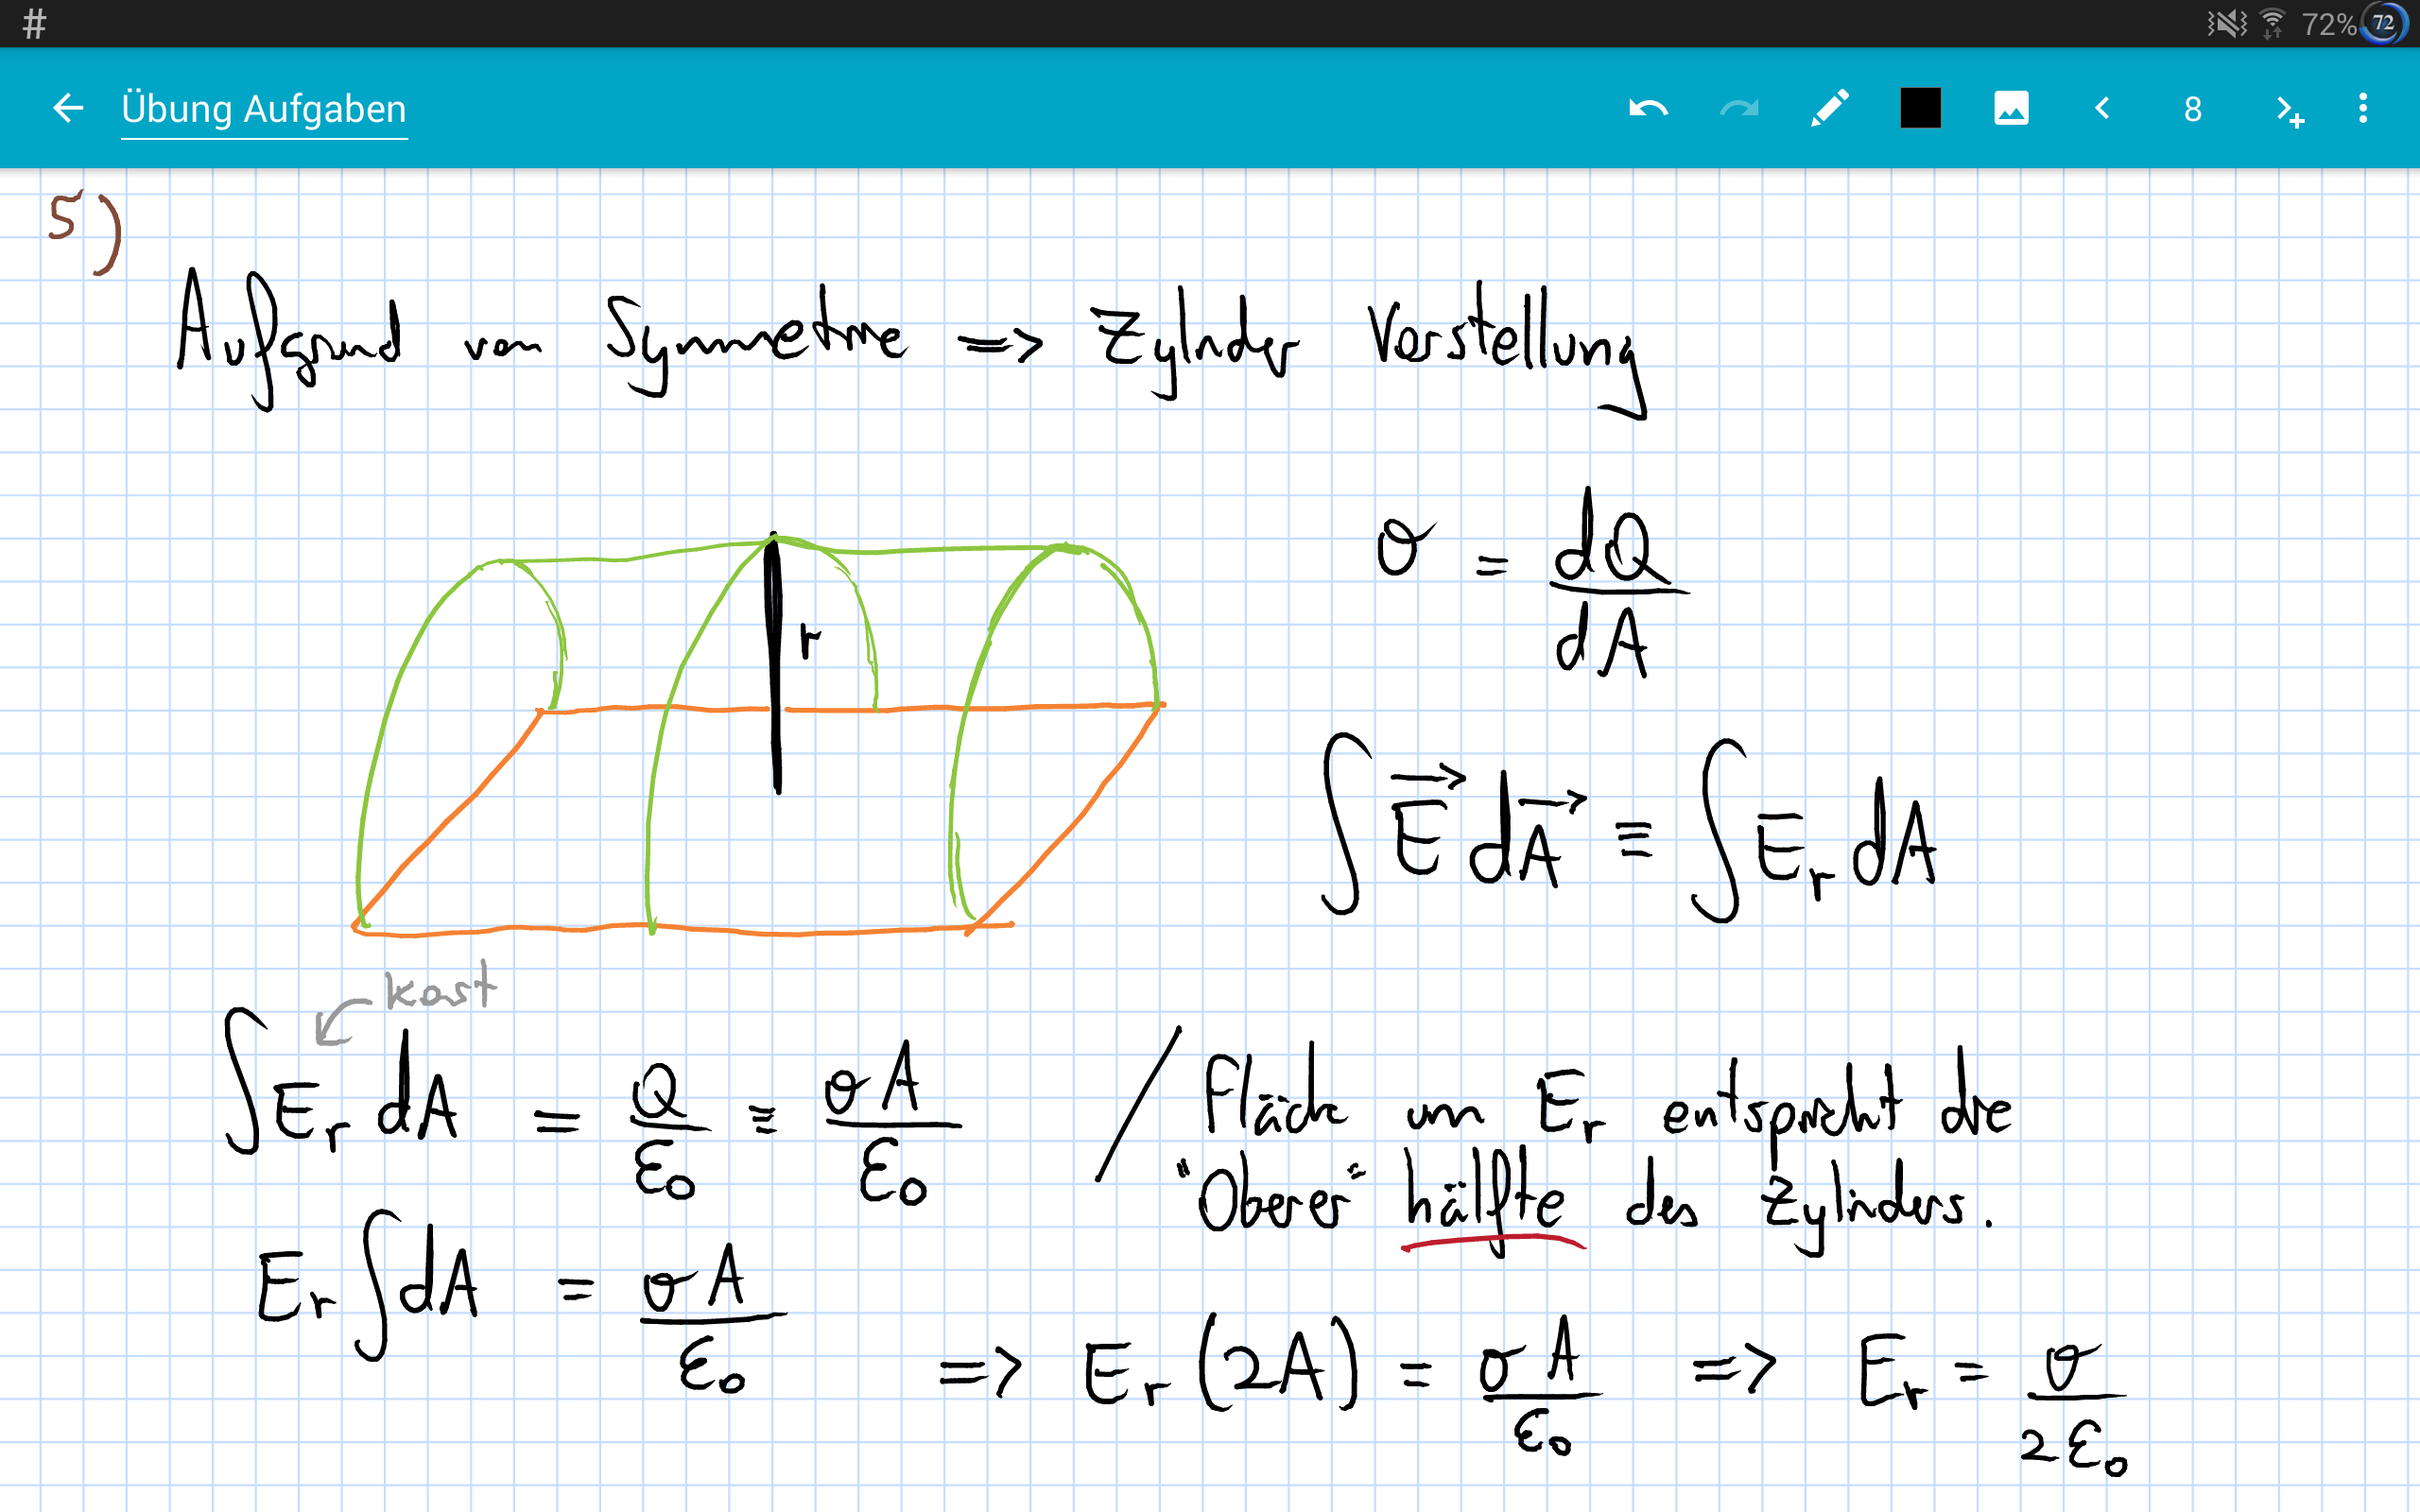 #
72% 72
Übung Aufgaben
8
5)
Aufgrund von Symmetrie => Zylinder Vorstellung
σ = dQ/dA
r
∫ E⃗ dA⃗ = ∫ E_r dA
konst
∫ E_r dA = Q/ε₀ = σA/ε₀ / Fläche von E_r entspricht die
"Oberer" hälfte des Zylinders.
E_r ∫ dA = σA/ε₀ => E_r (2A) = σA/ε₀ => E_r = σ/2ε₀